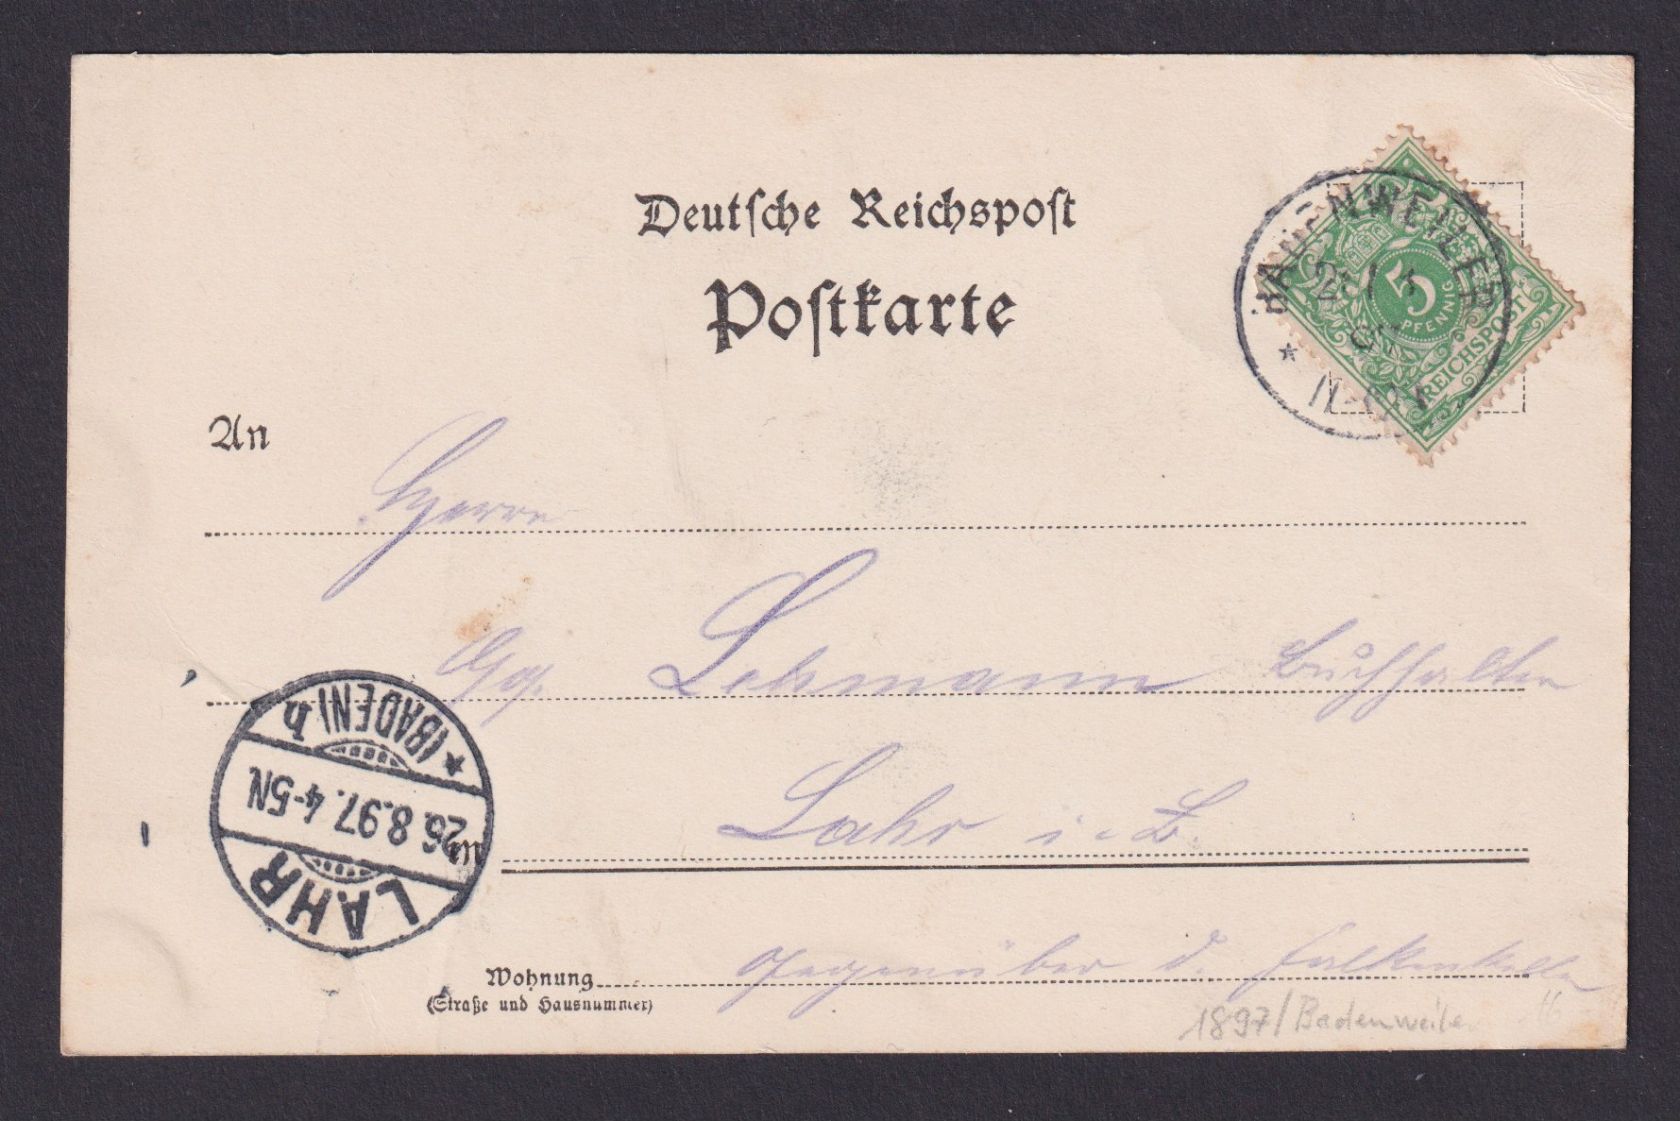 Deutsche Reichspost
Postkarte
BADENWEILER
5
PFENNIG
REICHSPOST
An
Herrn
Gg. Lehmann Buchhalter
Lahr i. B.
in
LAHR
26.8.97. 4-5N
* (BADEN) h
Wohnung
(Straße und Hausnummer)
gegenüber d. Falkenkeller
1897/Badenweiler